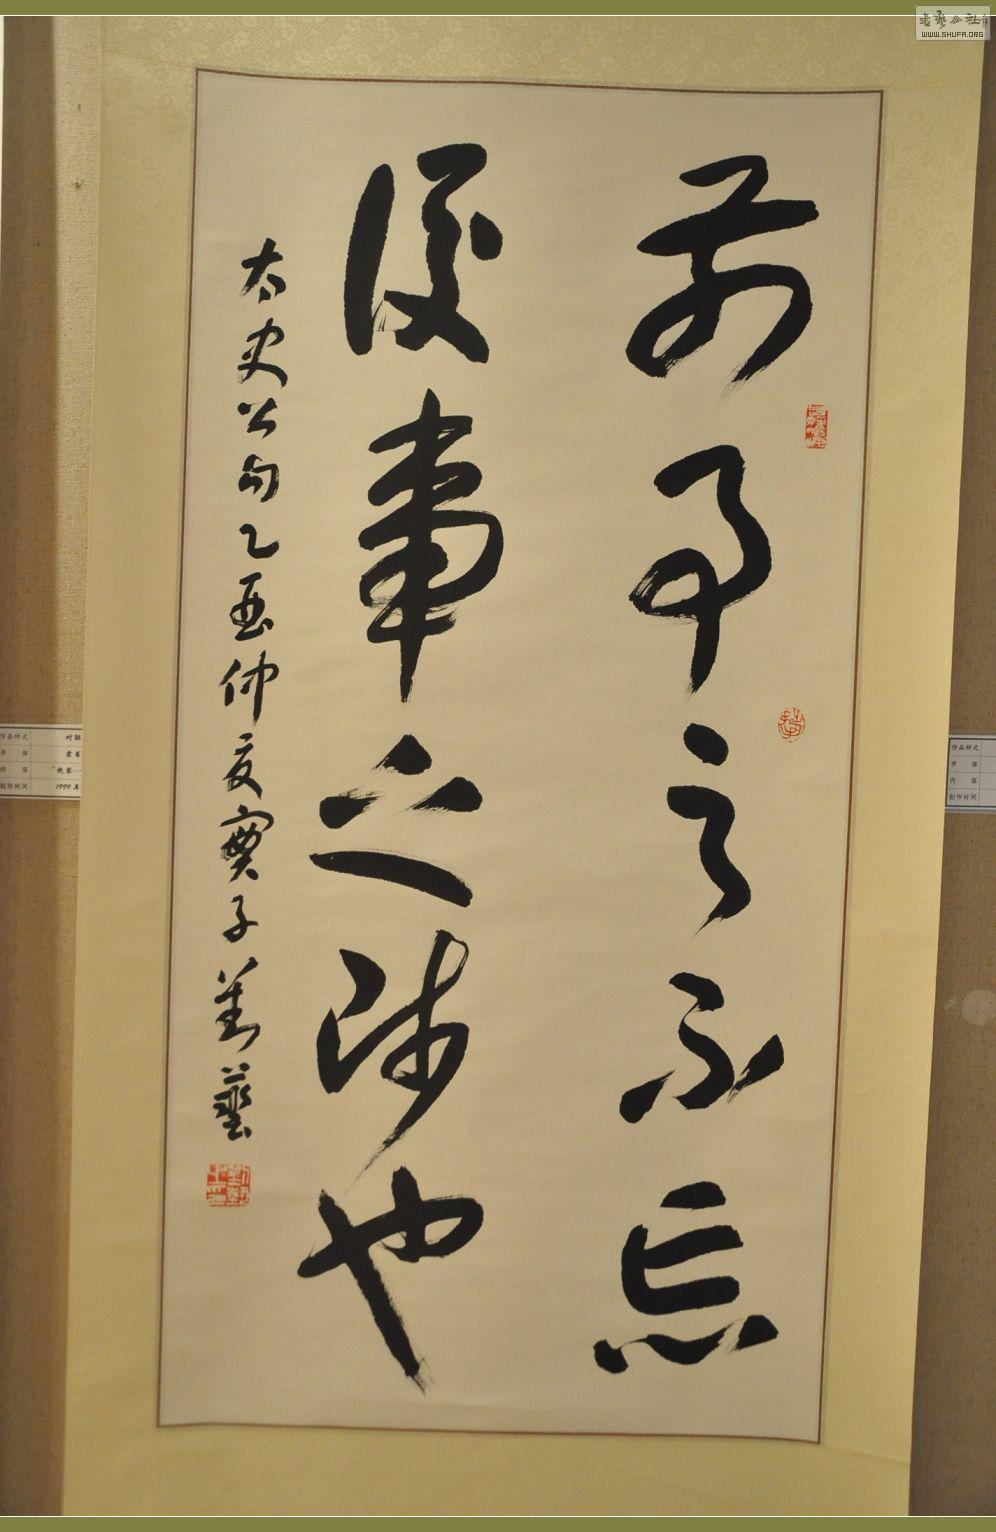 前事之不忘
後事之师也
太史公句乙酉仲夏實子劉藝
作品样式 对联
书体
内容
创作时间 1999年
作品样式
书体
内容
创作时间
书艺公社
WWW.SHUFA.ORG